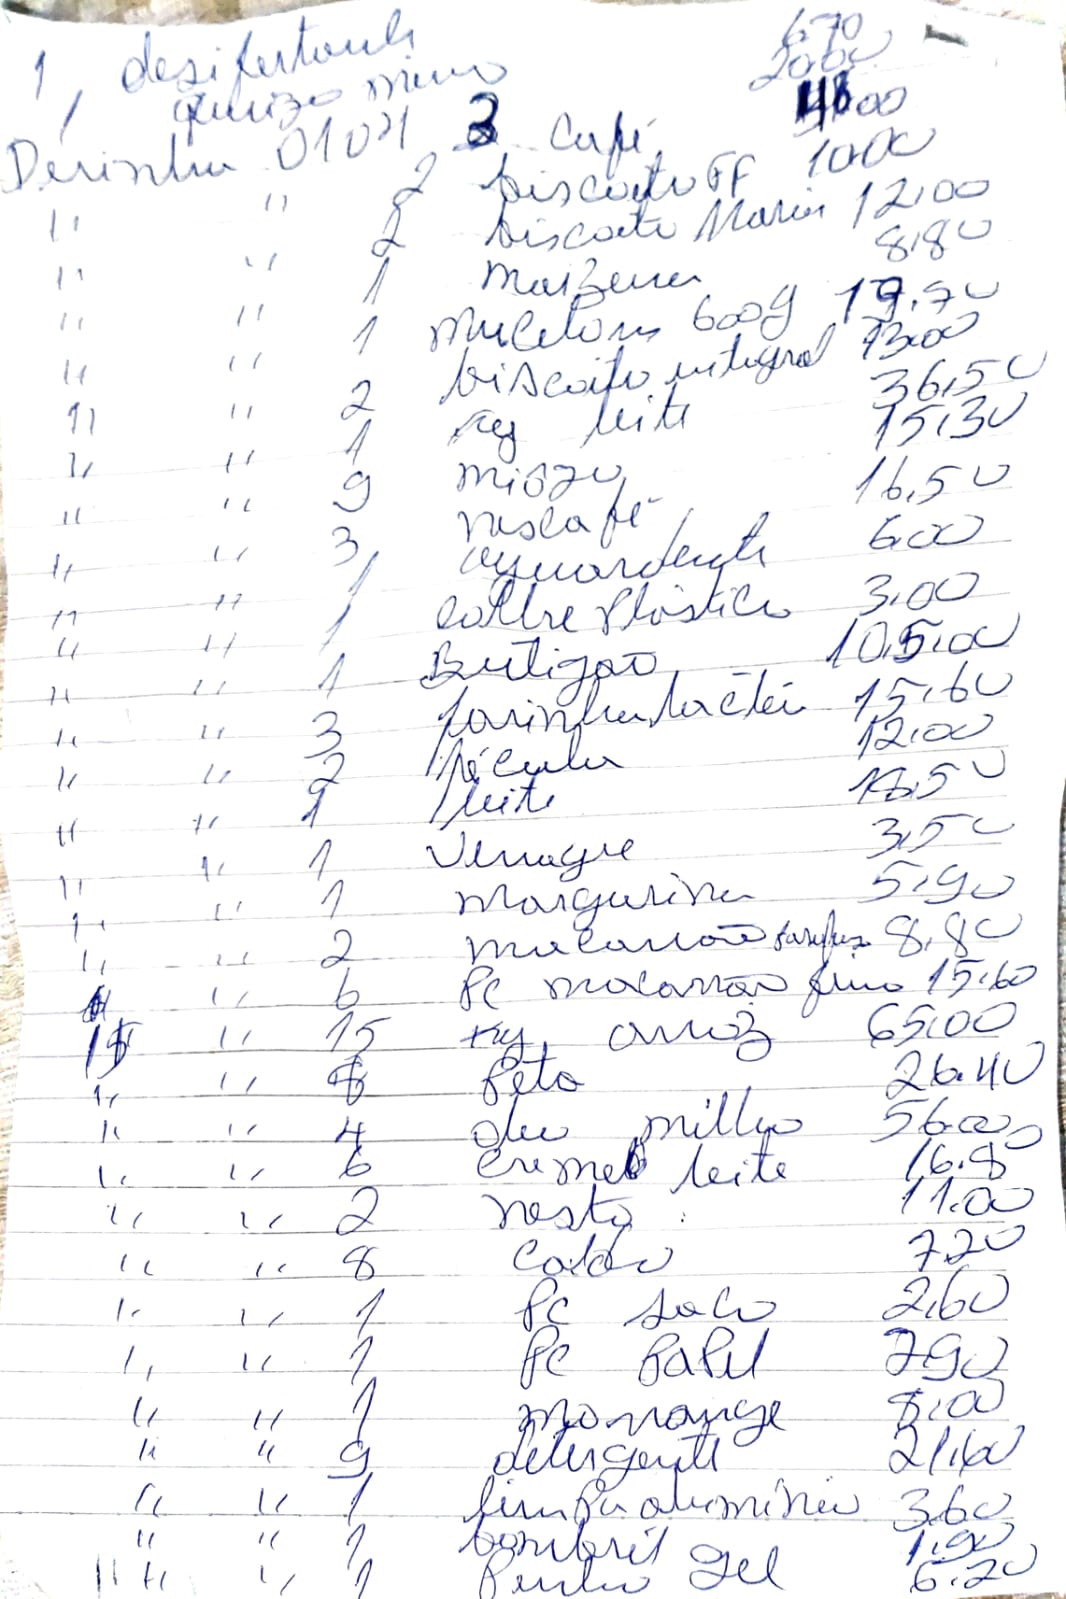 1 desifertante 6.70
1 queizo mino 20.00
Derinha 01 0 21 3 Café 48 00
" " 2 biscoito FF 10.00
" " 2 biscoito Maria 12.00
" " 1 Maizena 8.80
" " 1 Mucelom 600g 19.90
" " 2 biscoito integral 13.00
" " 1 Kg leite 36,50
" " 9 miojo 15,30
" " 3 nescafé 16,50
" " 1 aguardente 6.00
" " 1 colhe Plástica 3.00
" " 1 Butigão 105.00
" " 3 farinha lactea 15.60
" " 2 fécula 12.00
" " 1 leite 18.50
" " 1 Venagre 3,50
" " 1 margarina 5.90
" " 2 macarrão parafuz 8.80
" " 6 Pc macarrão fino 15.60
15 " 15 Kg arroz 65.00
" " 8 Peta 26.40
" " 4 oleo milho 56.00
" " 6 creme leite 16.8
" " 2 nesto 11.00
" " 8 Caldo 7.20
" " 1 Pc saco 2,60
" " 1 Pc Papel 7.90
" " 1 monange 8,00
" " 9 detergente 21,60
" " 1 limpa aluminio 3.60
" " 1 bombril 1.90
" " 1 Pinho Gel 6.20